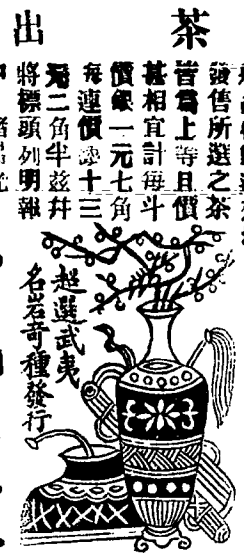 茶出
發售所選之茶
皆爲上等且價
甚相宜計每斗
價銀一元七角
每連價銀十三
元二角半茲幷
將標頭列明報
超選武夷
名岩奇種發行